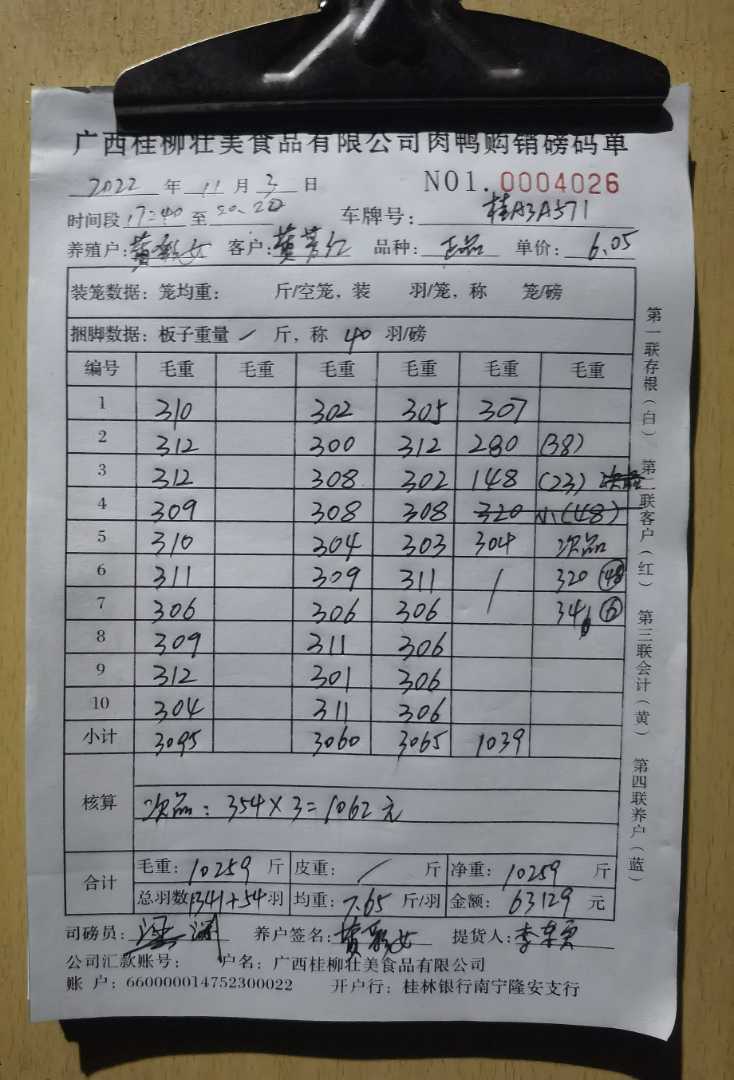 广西桂柳壮美食品有限公司肉鸭购销磅码单
2022 年 11 月 3 日 NO1. 0004026
时间段 17:40 至 20:20 车牌号: 桂A3A571
养殖户: 黄彩女 客户: 黄芳红 品种: 正品 单价: 6.05
装笼数据: 笼均重: 斤/空笼, 装 羽/笼, 称 笼/磅
捆脚数据: 板子重量 / 斤, 称 40 羽/磅
编号 毛重 毛重 毛重 毛重 毛重 毛重
1 310 302 305 307
2 312 300 312 280 (38)
3 312 308 302 148 (23)
4 309 308 308 320 小(48)
5 310 304 303 304 次品
6 311 309 311 / 320 (48)
7 306 306 306 / 34 (6)
8 309 311 306
9 312 301 306
10 304 311 306
小计 3095 3060 3065 1039
核算 次品: 354×3=1062元
合计 毛重: 10259 斤 皮重: / 斤 净重: 10259 斤
总羽数 1341+54 羽 均重: 7.65 斤/羽 金额: 63129 元
司磅员: 养户签名: 黄彩女 提货人: 李
公司汇款账号: 户名: 广西桂柳壮美食品有限公司
账 户: 660000014752300022 开户行: 桂林银行南宁隆安支行
第一联存根(白) 第二联客户(红) 第三联会计(黄) 第四联养户(蓝)